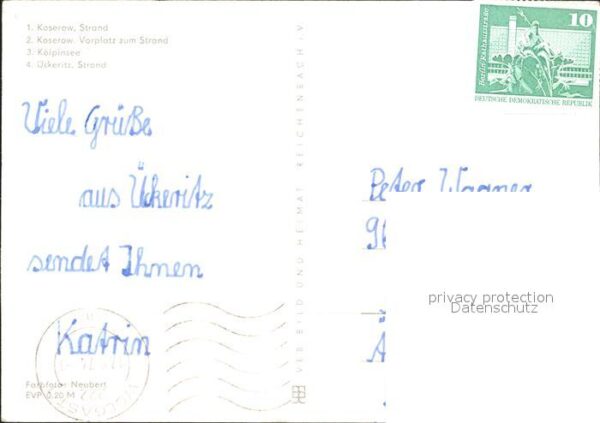 1. Koserow, Strand
2. Koserow, Vorplatz zum Strand
3. Kölpinsee
4. Ückeritz, Strand
Viele Grüße
aus Ückeritz
sendet Ihnen
Katrin
Farbfotos Neubert
EVP 0.20 M
WOLGAST
VEB BILD UND HEIMAT REICHENBACH i. V.
Berlin, Rathausstraße
10
DEUTSCHE DEMOKRATISCHE REPUBLIK
Peter Wagner
96
privacy protection
Datenschutz